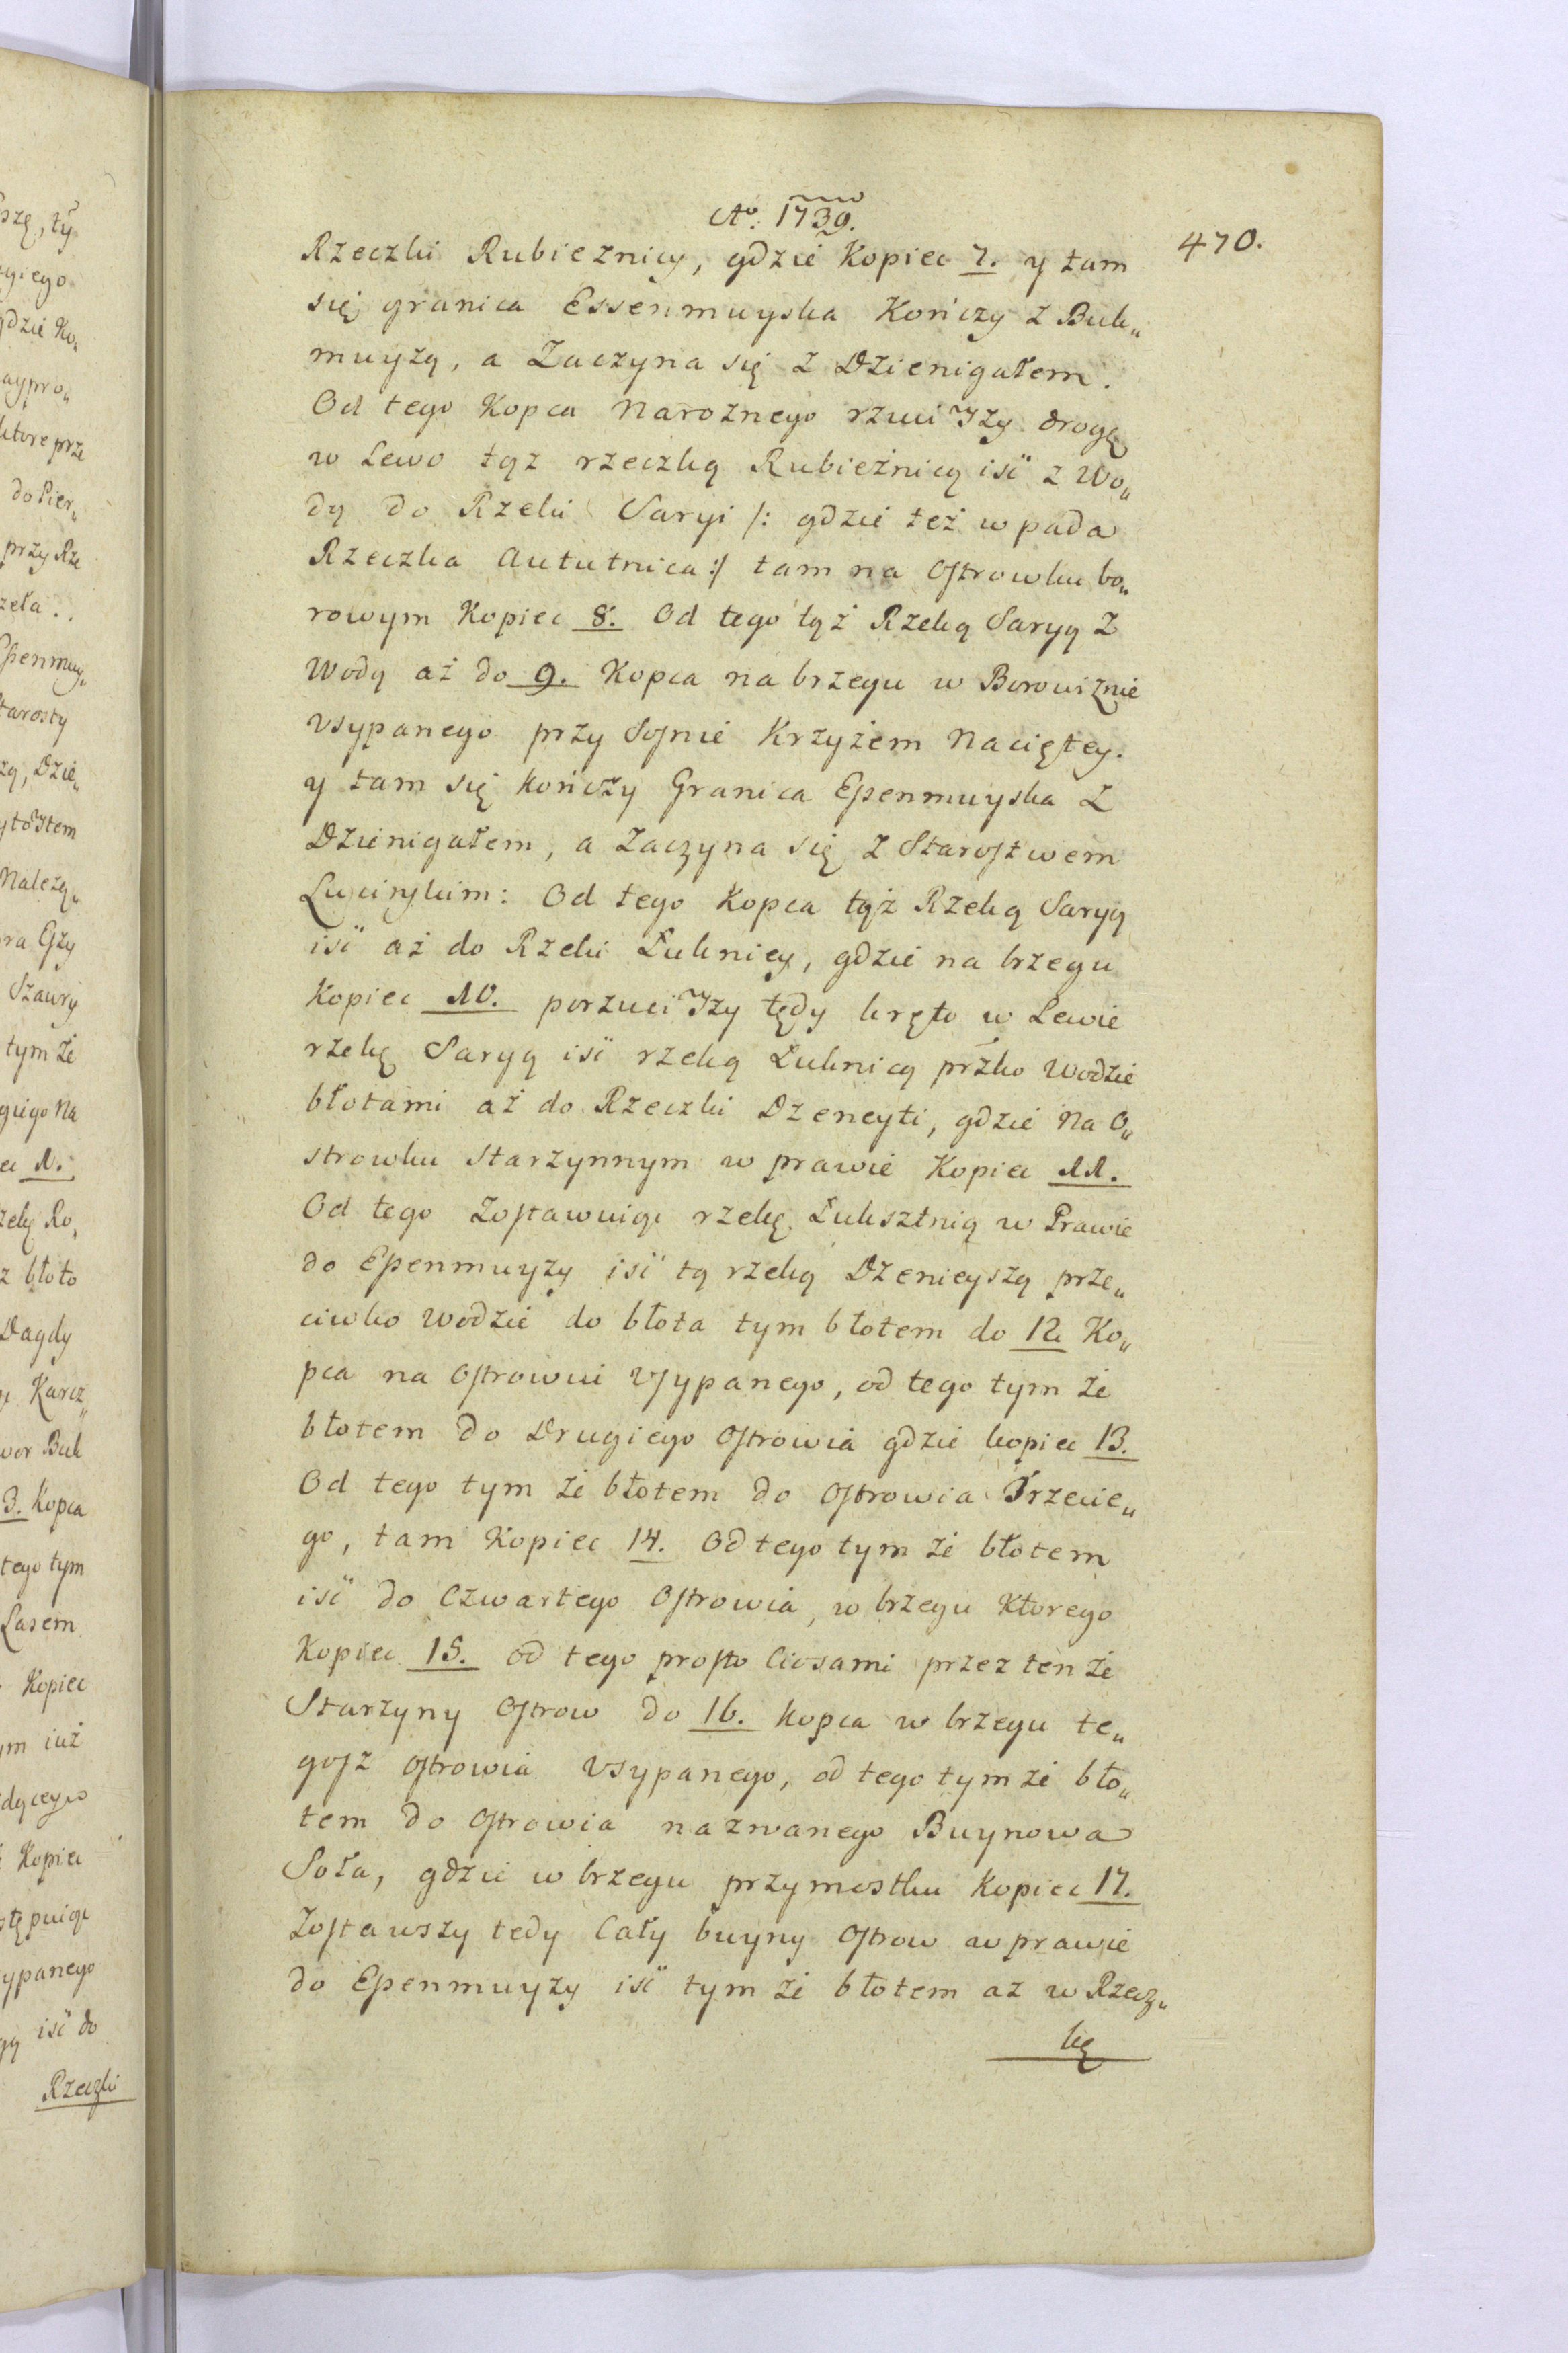 Ao: 1739.
470.
Rzeczki Rubieznicy, gdzie Kopiec 7. y tam
się granica Essenmuyska Kończy z Buk„
muyzą, a Zaczyna się z Dzienigałem.
Od tego Kopca Naroznego rzuci Jzy drogę
w Lewo tąz rzeczką Rubieżnicą iść z Wo„
dą do Rzeki Saryi /: gdzie też wpada
Rzeczka Aututnica :/ tam na Ostrowku bo„
rowym Kopiec 8. Od tego tąż Rzeką Saryą Z
Wodą aż do 9. Kopca na brzegu w Borowiznie
vsypanego przy Sosnie Krzyżem Naciętey.
y tam się kończy Granica Essenmuyska Z
Dzienigałem, a Zaczyna się z Starostwem
Lucinskim: Od tego Kopca tąż Rzeką Saryą
iść aż do Rzeki Łuknicy, gdzie na brzegu
Kopiec 10. porzuci Jzy tędy kręto w Lewie
rzekę Saryą iść rzeką Łuknicą przko Wodzie
błotami aż do Rzeczki Dzeneyti, gdzie Na O„
strowku starzynnym w prawie Kopiec 11.
Od tego Zostawuiąc rzekę Łuksztnią w Prawie
do Essenmuyzy iść tą rzeką Dzenieyszą prze„
ciwko Wodzie do błota tym błotem do 12. Ko„
pca na Ostrowiu Vsypanego, od tego tym że
błotem do Drugiego Ostrowia gdzie kopiec 13.
Od tego tym że błotem do Ostrowia Trzecie„
go, tam Kopiec 14. Od tego tym że błotem
iść do Czwartego Ostrowia, w brzegu Ktorego
Kopiec 15. od tego prosto Ciosami przez ten że
Starzyny Ostrow do 16. kopca w brzegu te„
gosz ostrowia vsypanego, od tego tym że bło„
tem do Ostrowia nazwanego Buynowa
Soła, gdzie w brzegu przy mostku Kopiec 17.
Zostawszy tedy Cały buyny Ostrow w prawie
do Essenmuyzy iść tym że błotem az w Rzecz„
kę